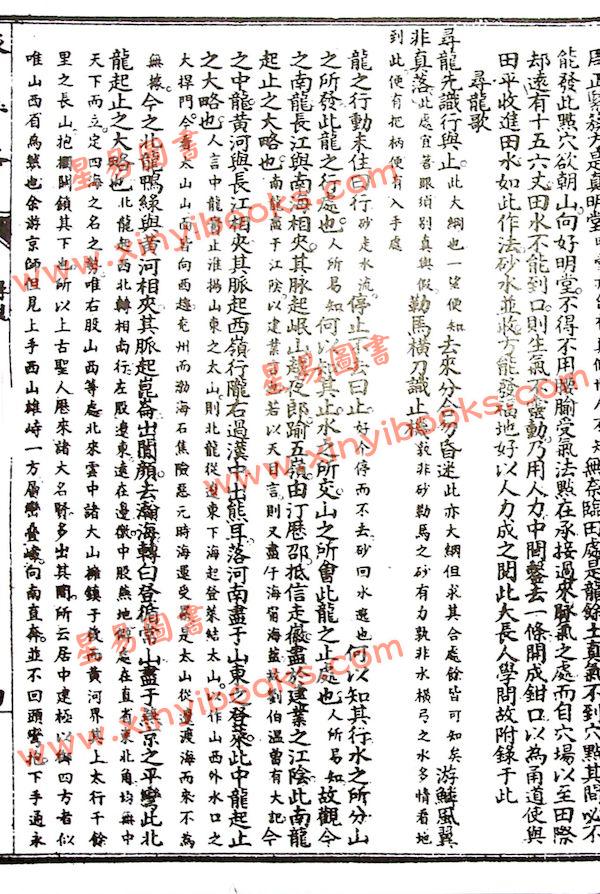 能發此點穴欲朝山向好明堂不得不用 受氣法點在承接過來脉氣之處而自穴場以至田際
却遠有十五六丈田水不能到口則生氣不靈動乃用人力中間鑿去一條開成鉗口以為甬道使與
田平收進田水如此作法砂水並收方能發福地好以人力成之因此大長人學問故附錄于此
尋龍歌
尋龍先識行與止此大綱也一望便知去來分合勿昏迷此亦大綱但求其合處餘皆可知矣游鱗風翼
非真落此處宜著眼須別真與假勒馬橫刀識止機孰非砂勒馬之砂有力孰非水橫弓之水多情看地
到此便有把柄便有入手處
龍之行動未住曰行砂走水流停止不去曰止好人停而不去砂回水遶也何以知其行水之所分山
之所發此龍之行處也人所易知何以知其止水之所交山之所會此龍之止處也人所易知故觀今
之南龍長江與南海相夾其脉起岷山趨夜郎踰五嶺由汀歷邵抵信走徽盡於建業之江陰此南龍
起止之大略也南龍盡于江陰以建業曰也若以天目言則又盡于海甯海鹽故劉伯溫曾有大記今
之中龍黃河與長江相夾其脉起西嶺行隴右過漢中出熊耳落河南盡于山東之登萊此中龍起止
之大略也人言中龍實止淮揚山東之太山則北龍從遼東下海起登萊結太山以作山西外水口之
大捍門今看太山山面皆向西趨兗州而渤海石焦險惡元時海運受累是太山從遼渡海而來不為
無據今之北龍鴨綠與黃河相夾其脉起崑崙出闐顏去瀚海轉白登循常山盡于燕京之平灣此北
龍起止之大略也北龍起西北轉相南行左股遼東遠在邊徼中股燕地僻處在直省東北角均無中
天下而立定四海之名之勢唯右股山西等處北來雲中諸大山擁鎮于後而黃河界其上太行千餘
里之長山抱攔關鎖其下也所以上古聖人歷來諸大名縣多出其間所云居中建極以御四方者似
唯山西省為然也余游京師但見上手西山雄峙一方層巒疊嶂向南直奔並不回頭彎抱下手通永
星易圖書
www.xinyibooks.com
星易圖書
www.xinyibooks.com
星易圖書
www.xinyibooks.com
星易圖書
www.xinyibooks.com